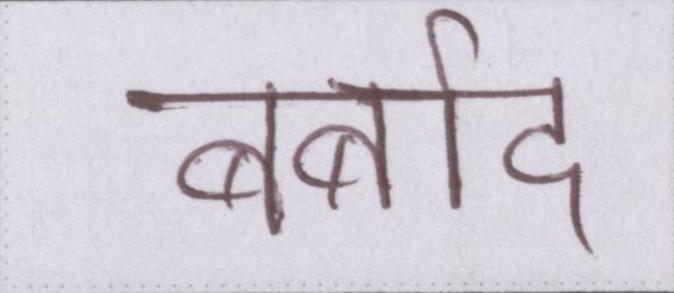 बर्बाद